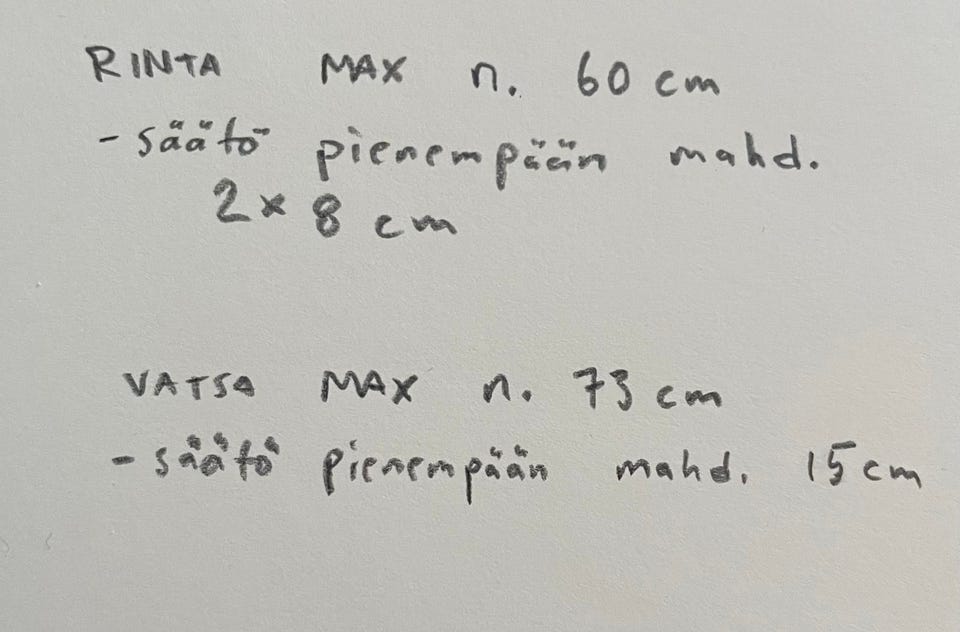 RINTA MAX n. 60 cm
- säätö pienempään mahd.
2 x 8 cm
VATSA MAX n. 73 cm
- säätö pienempään mahd. 15 cm